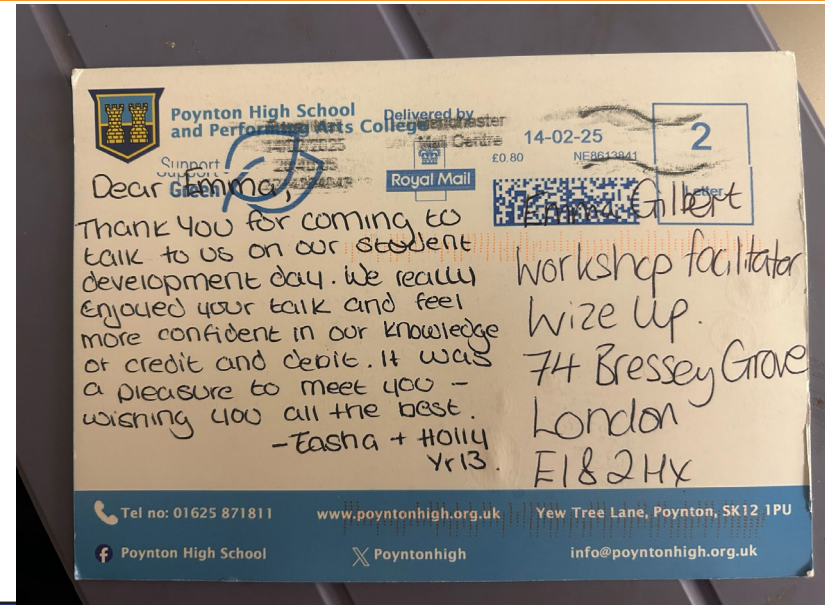 Poynton High School
and Performing Arts College
Delivered by
Royal Mail
Manchester
Mail Centre
14-02-25
£0.80 NE8613841
2
Letter
Support
Green
Dear Emma,
Thank you for coming to
talk to us on our student
development day. We really
enjoyed your talk and feel
more confident in our knowledge
of credit and debit. It was
a pleasure to meet you –
wishing you all the best.
- Tasha + Holly
Yr13.
Emma Gilbert
Workshop facilitator
Wize Up.
74 Bressey Grove
London
E18 2HX
Tel no: 01625 871811 www.poyntonhigh.org.uk Yew Tree Lane, Poynton, SK12 1PU
Poynton High School Poyntonhigh info@poyntonhigh.org.uk